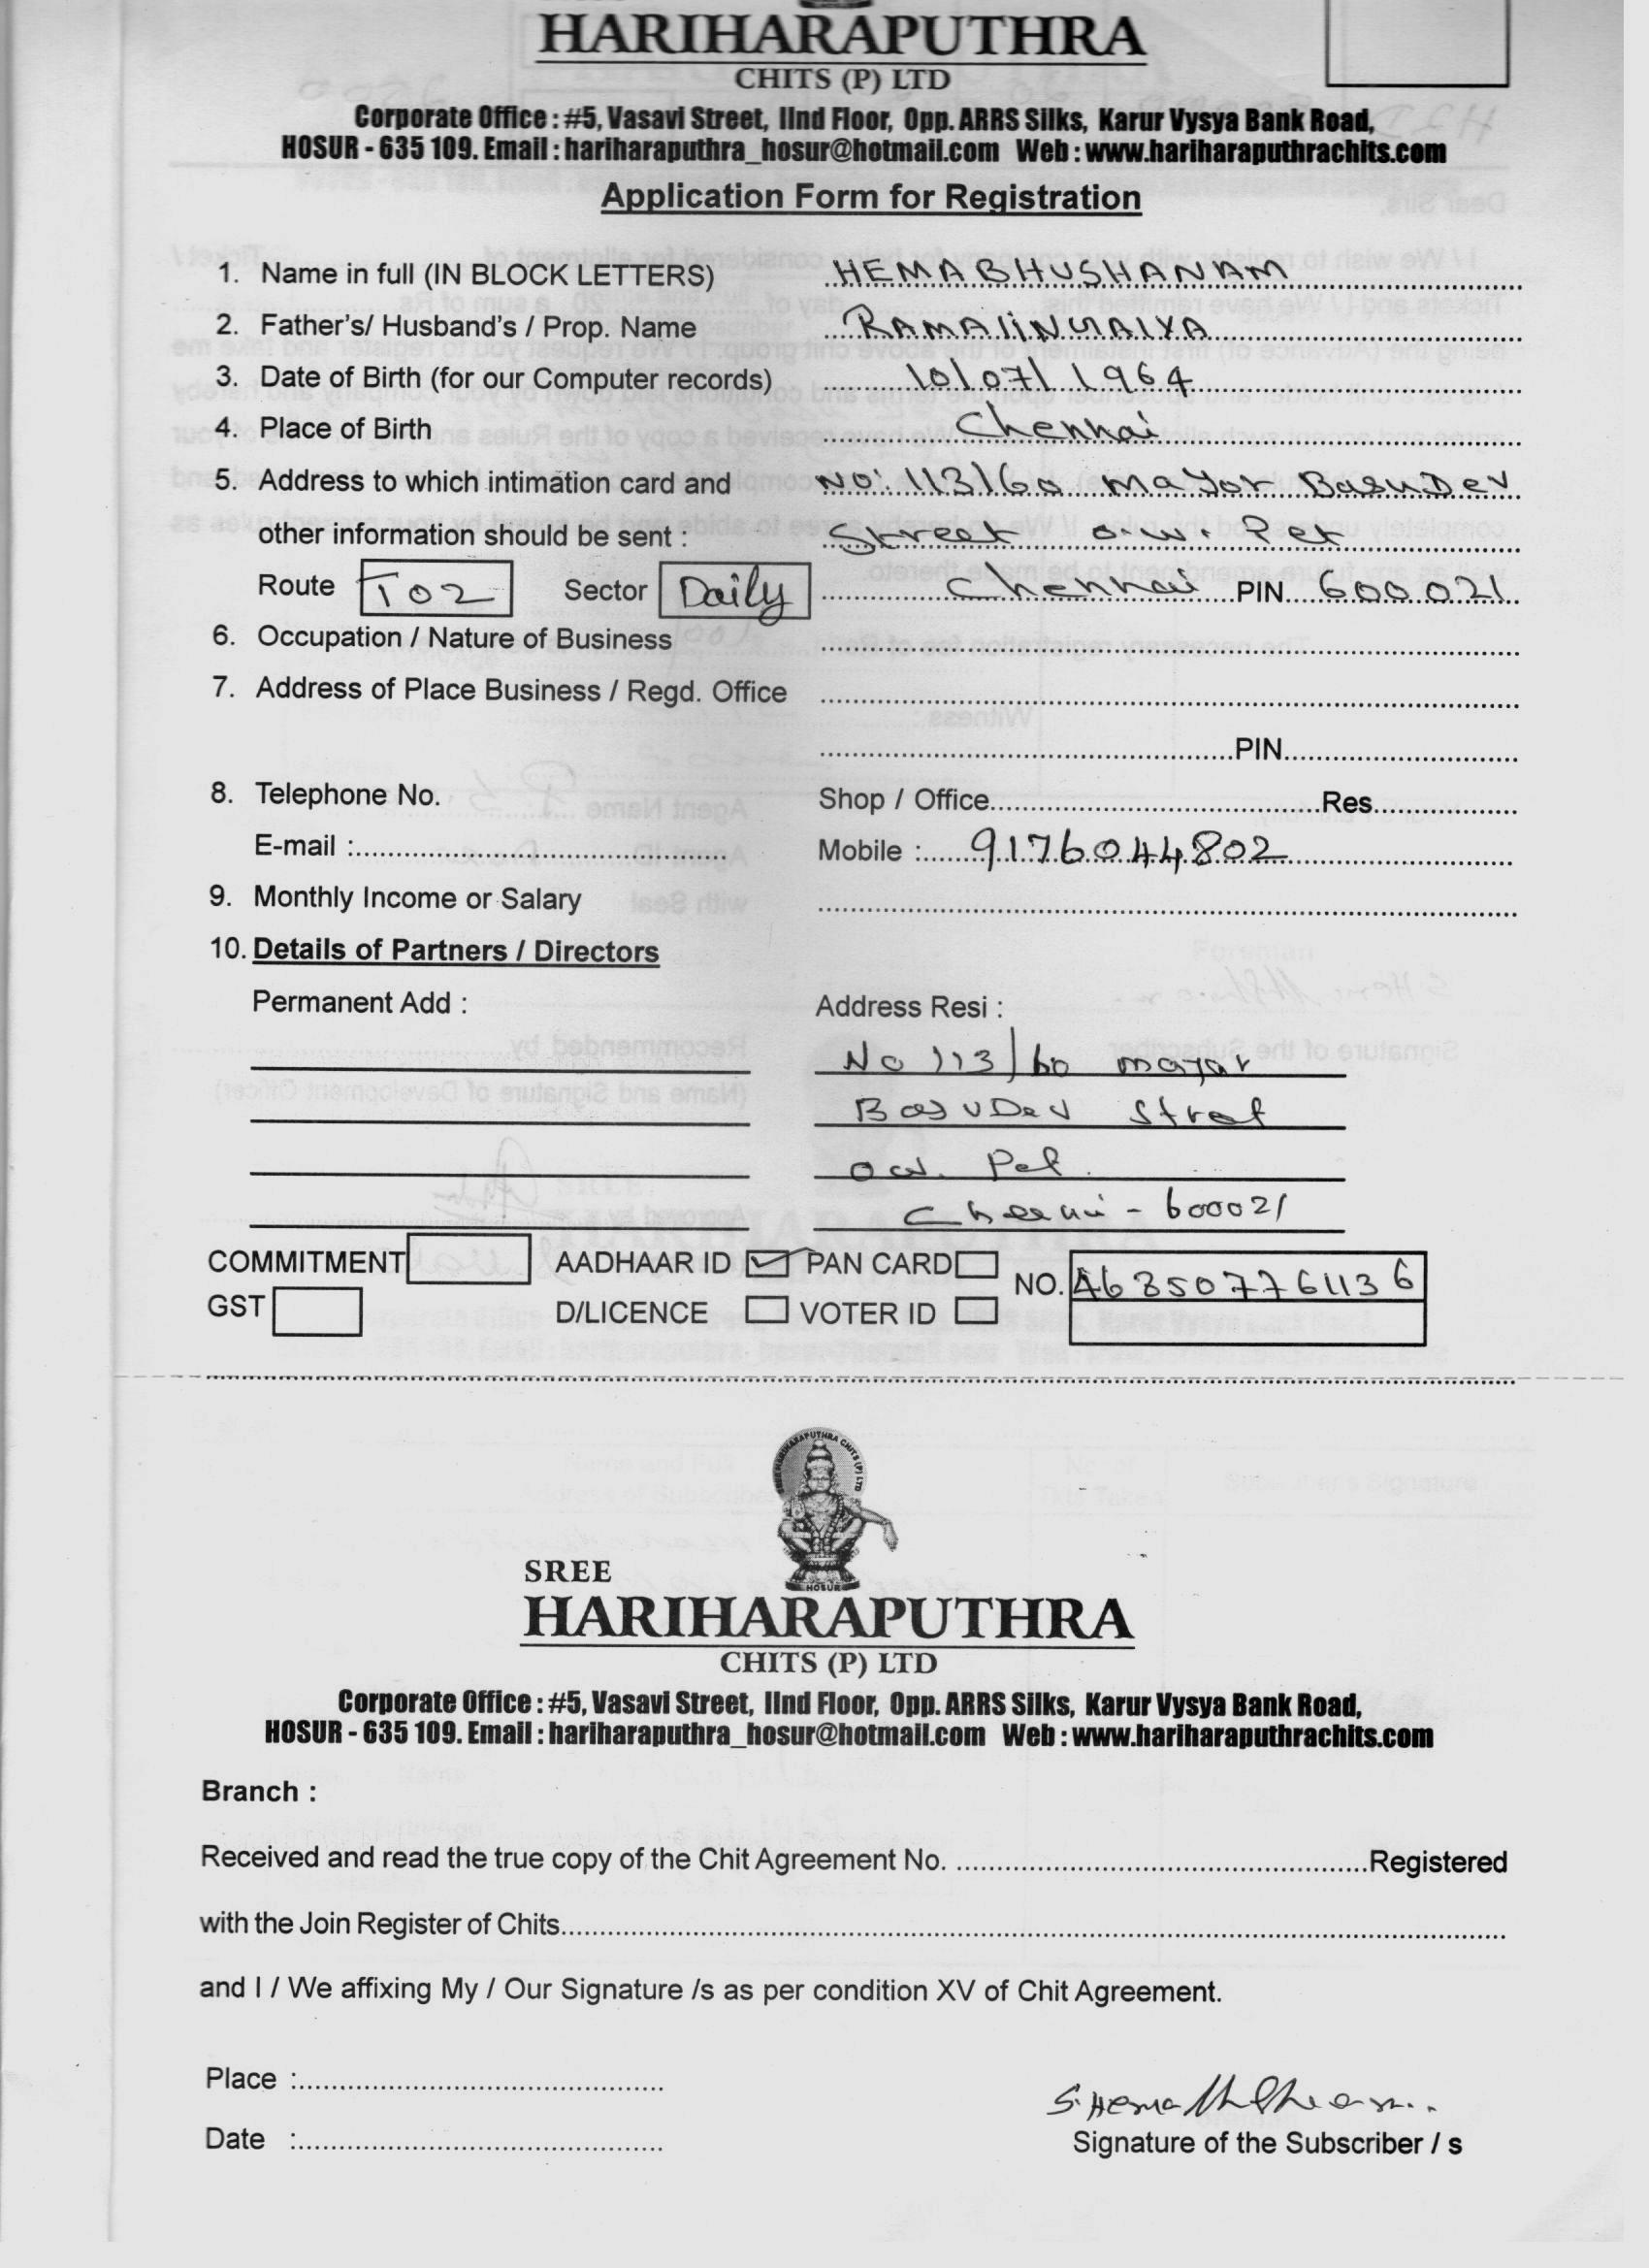 HARIHARAPUTHRA
CHITS (P) LTD
Corporate Office : #5, Vasavi Street, IInd Floor, Opp. ARRS Silks, Karur Vysya Bank Road,
HOSUR - 635 109. Email : hariharaputhra_hosur@hotmail.com Web : www.hariharaputhrachits.com
Application Form for Registration
1. Name in full (IN BLOCK LETTERS) HEMABHUSHANAM
2. Father's/ Husband's / Prop. Name RAMALINGAIYA
3. Date of Birth (for our Computer records) 10/07/1964
4. Place of Birth Chennai
5. Address to which intimation card and NO: 113/60 Mayor BasuDev
other information should be sent : Street o.w. Pet
Route T02 Sector Daily Chennai PIN 600021
6. Occupation / Nature of Business
7. Address of Place Business / Regd. Office
PIN
8. Telephone No. Shop / Office Res.
E-mail : Mobile : 9176044802
9. Monthly Income or Salary
10. Details of Partners / Directors
Permanent Add : Address Resi :
No 113/60 mayar
BasuDev Stret
o.w. Pet.
- 600021
COMMITMENT AADHAAR ID ✓ PAN CARD NO.
GST D/LICENCE VOTER ID
SREE
HARIHARAPUTHRA
CHITS (P) LTD
Corporate Office : #5, Vasavi Street, IInd Floor, Opp. ARRS Silks, Karur Vysya Bank Road,
HOSUR - 635 109. Email : hariharaputhra_hosur@hotmail.com Web : www.hariharaputhrachits.com
Branch :
Received and read the true copy of the Chit Agreement No. Registered
with the Join Register of Chits
and I / We affixing My / Our Signature /s as per condition XV of Chit Agreement.
Place :
S. Hema
Date : Signature of the Subscriber / s